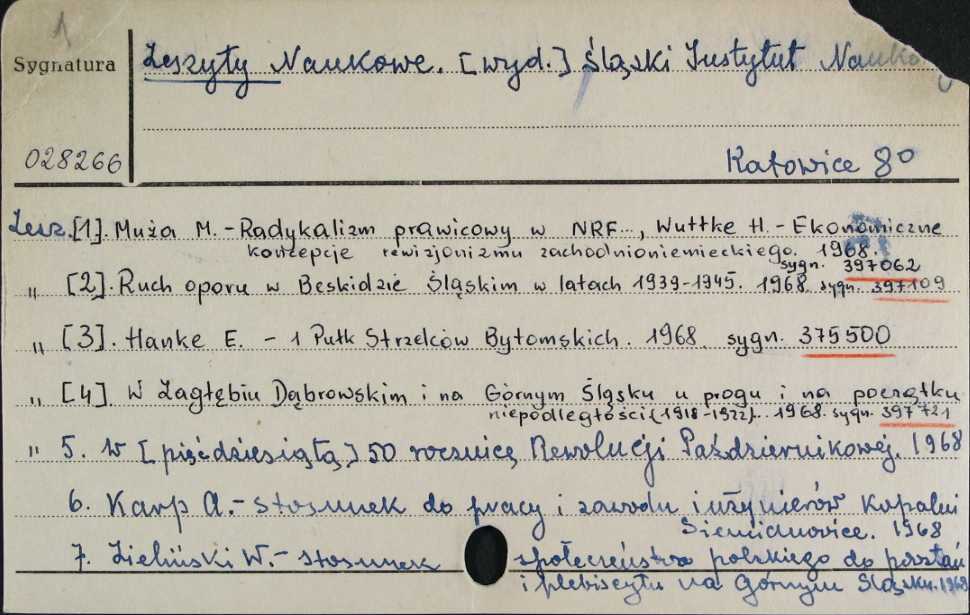 1
Sygnatura
Zeszyty Naukowe. [wyd.] Śląski Instytut Nauko
028266
Katowice 8°
Zesz. [1]. Muża M. - Radykalizm prawicowy w NRF..., Wuttke H. - Ekonomiczne
koncepcje rewizjonizmu zachodnioniemieckiego. 1968.
sygn. 397062
" [2]. Ruch oporu w Beskidzie Śląskim w latach 1939-1945. 1968. sygn. 397109
" [3]. Hanke E. - 1 Pułk Strzelców Bytomskich. 1968. sygn. 375500
" [4]. W Zagłębiu Dąbrowskim i na Górnym Śląsku u progu i na początku
niepodległości (1918-1922). 1968. sygn. 397721
" 5. W [pięćdziesiątą] 50 rocznicę Rewolucji Październikowej. 1968
6. Karp A. - Stosunek do pracy i zawodu inżynierów Kopalni
Siemianowice. 1968
7. Zieliński W. - Stosunek społeczeństwa polskiego do powstań
i plebiscytu na Górnym Śląsku. 1968